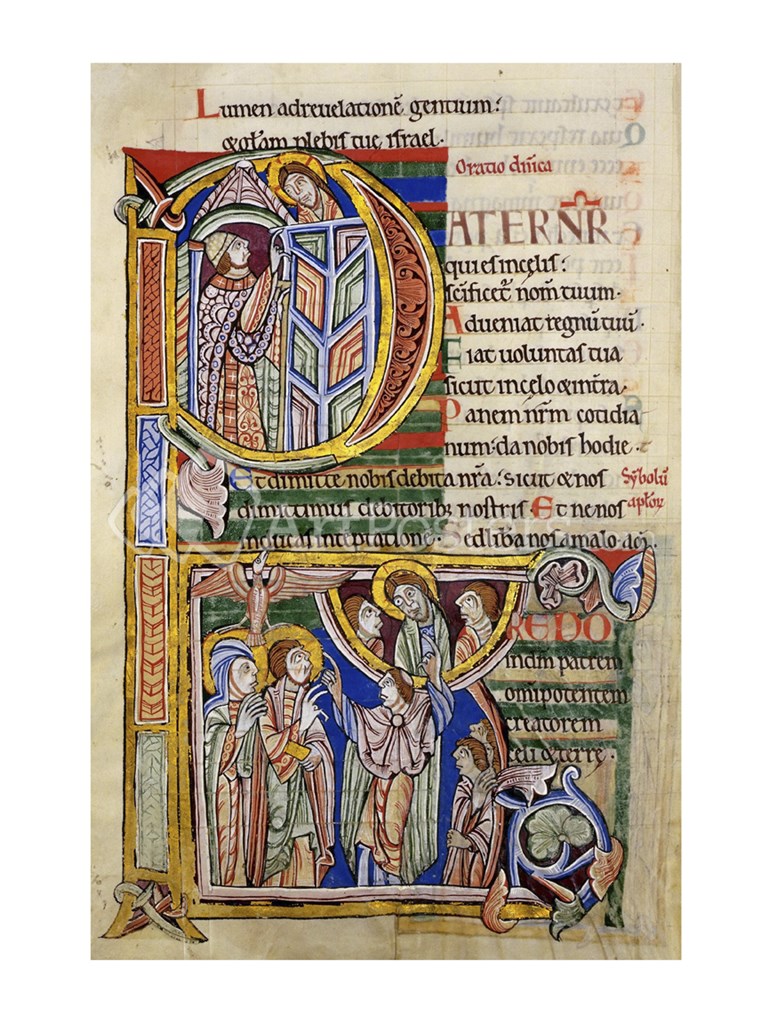 Lumen adreuelationē gentium:
&gl̄am plebis tue, isrl̄ael.
Oratio dn̄ica
PATERNR̄
qui es incelis:
sc̄ificet̄ nom̄ tuum.
Adueniat regnū tuū.
Fiat uoluntas tua
sicut incelo &int̄ra.
Panem nr̄m cotidia
num: da nobis hodie.
Et dimitte nobis debita nr̄a: sicut &nos
Sȳbolū
dimittimus debitorib; nostris. Et ne nos
ap̄lor̄
inducas intēptatione. Sed lib̄a nos amalo. am̄.
CREDO
indm̄ patrem
om̄ipotentem
creatorem
celi &terre.